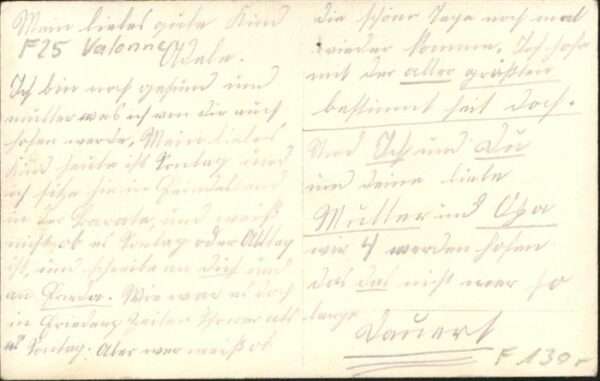 Mein liebes gutes Kind
F25 Valonne
Adele.
Ich bin noch gesund und
munter was ich von dir auch
hoffen werde, Mein liebes
Kind heute ist Sontag und
ich sitze hier in und
in der Barake, und weiß
nicht ob es Sontag oder Alltag
ist, und schreibe an dich und
an Frieda. Wie war es doch
in Friedens Zeiten schöner als
es Sontag. Aber wer weiß ob
die schöne Tage noch mal
wieder kommen. Ich hoffe
mit der aller größten
bestimmt heit doch.
Und Ich und Du
und deine liebe
Mutter und Opa
wir 4 werden hoffen
das das nicht mehr so
lange
Dauert
F 130